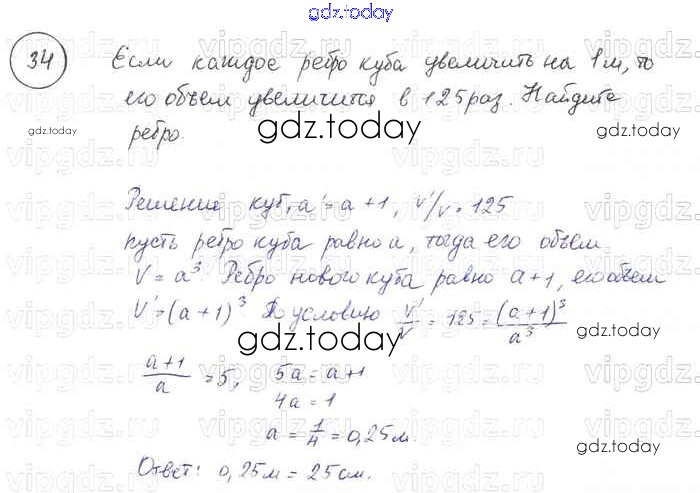 gdz.today
34 Если каждое ребро куба увеличить на 1м, то
его объем увеличится в 125 раз. Найдите
gdz.today gdz.today
ребро.
Решение куб, a' = a+1, V'/V = 125
пусть ребро куба равно a, тогда его объем
V = a³ Ребро нового куба равно a+1, его объем
V' = (a+1)³ По условию V'/V = 125 = (a+1)³/a³
gdz.today
(a+1)/a = 5, 5a = a+1
4a = 1
a = 1/4 = 0,25м.
gdz.today
Ответ: 0,25м = 25см.